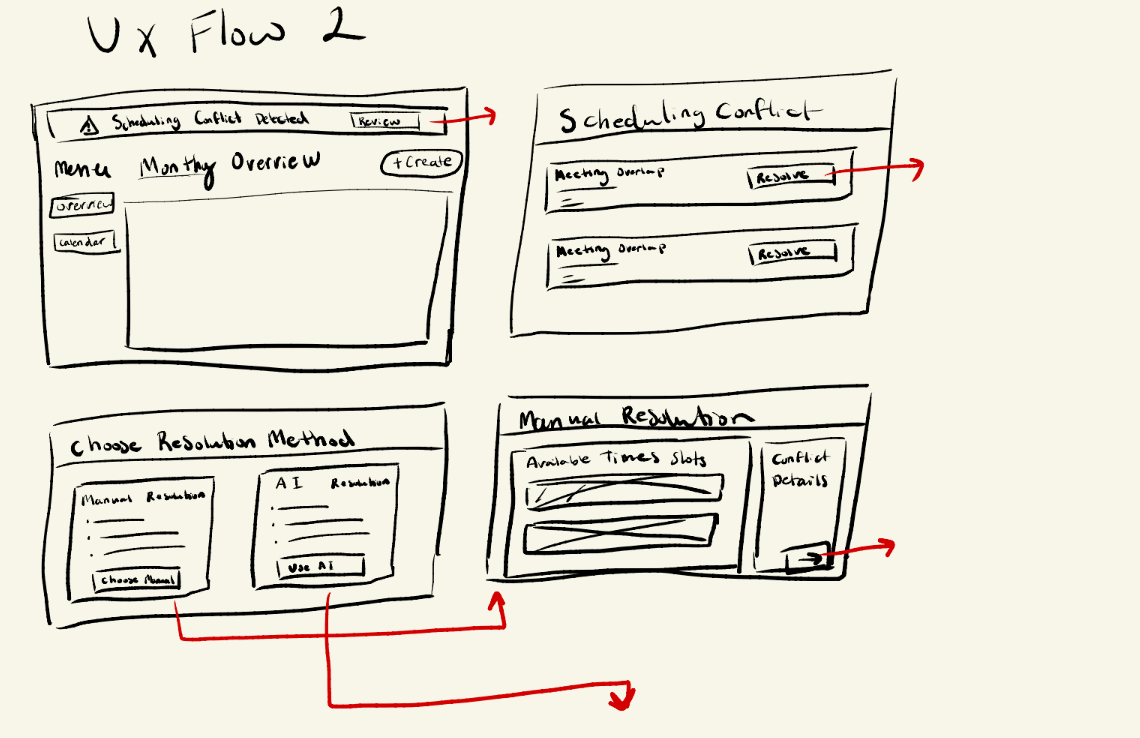 Ux Flow 2
Scheduling Conflict Detected
Review
Menu
Monthly Overview
+ Create
overview
calendar
Scheduling Conflict
Meeting Overlap
Resolve
Meeting Overlap
Resolve
Choose Resolution Method
Manual Resolution
Choose Manual
AI Resolution
Use AI
Manual Resolution
Available Times Slots
Conflict
Details